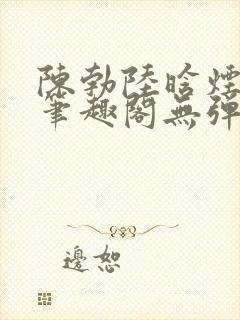 陳勃陸晗煙
筆趣閣無彈
邊恕